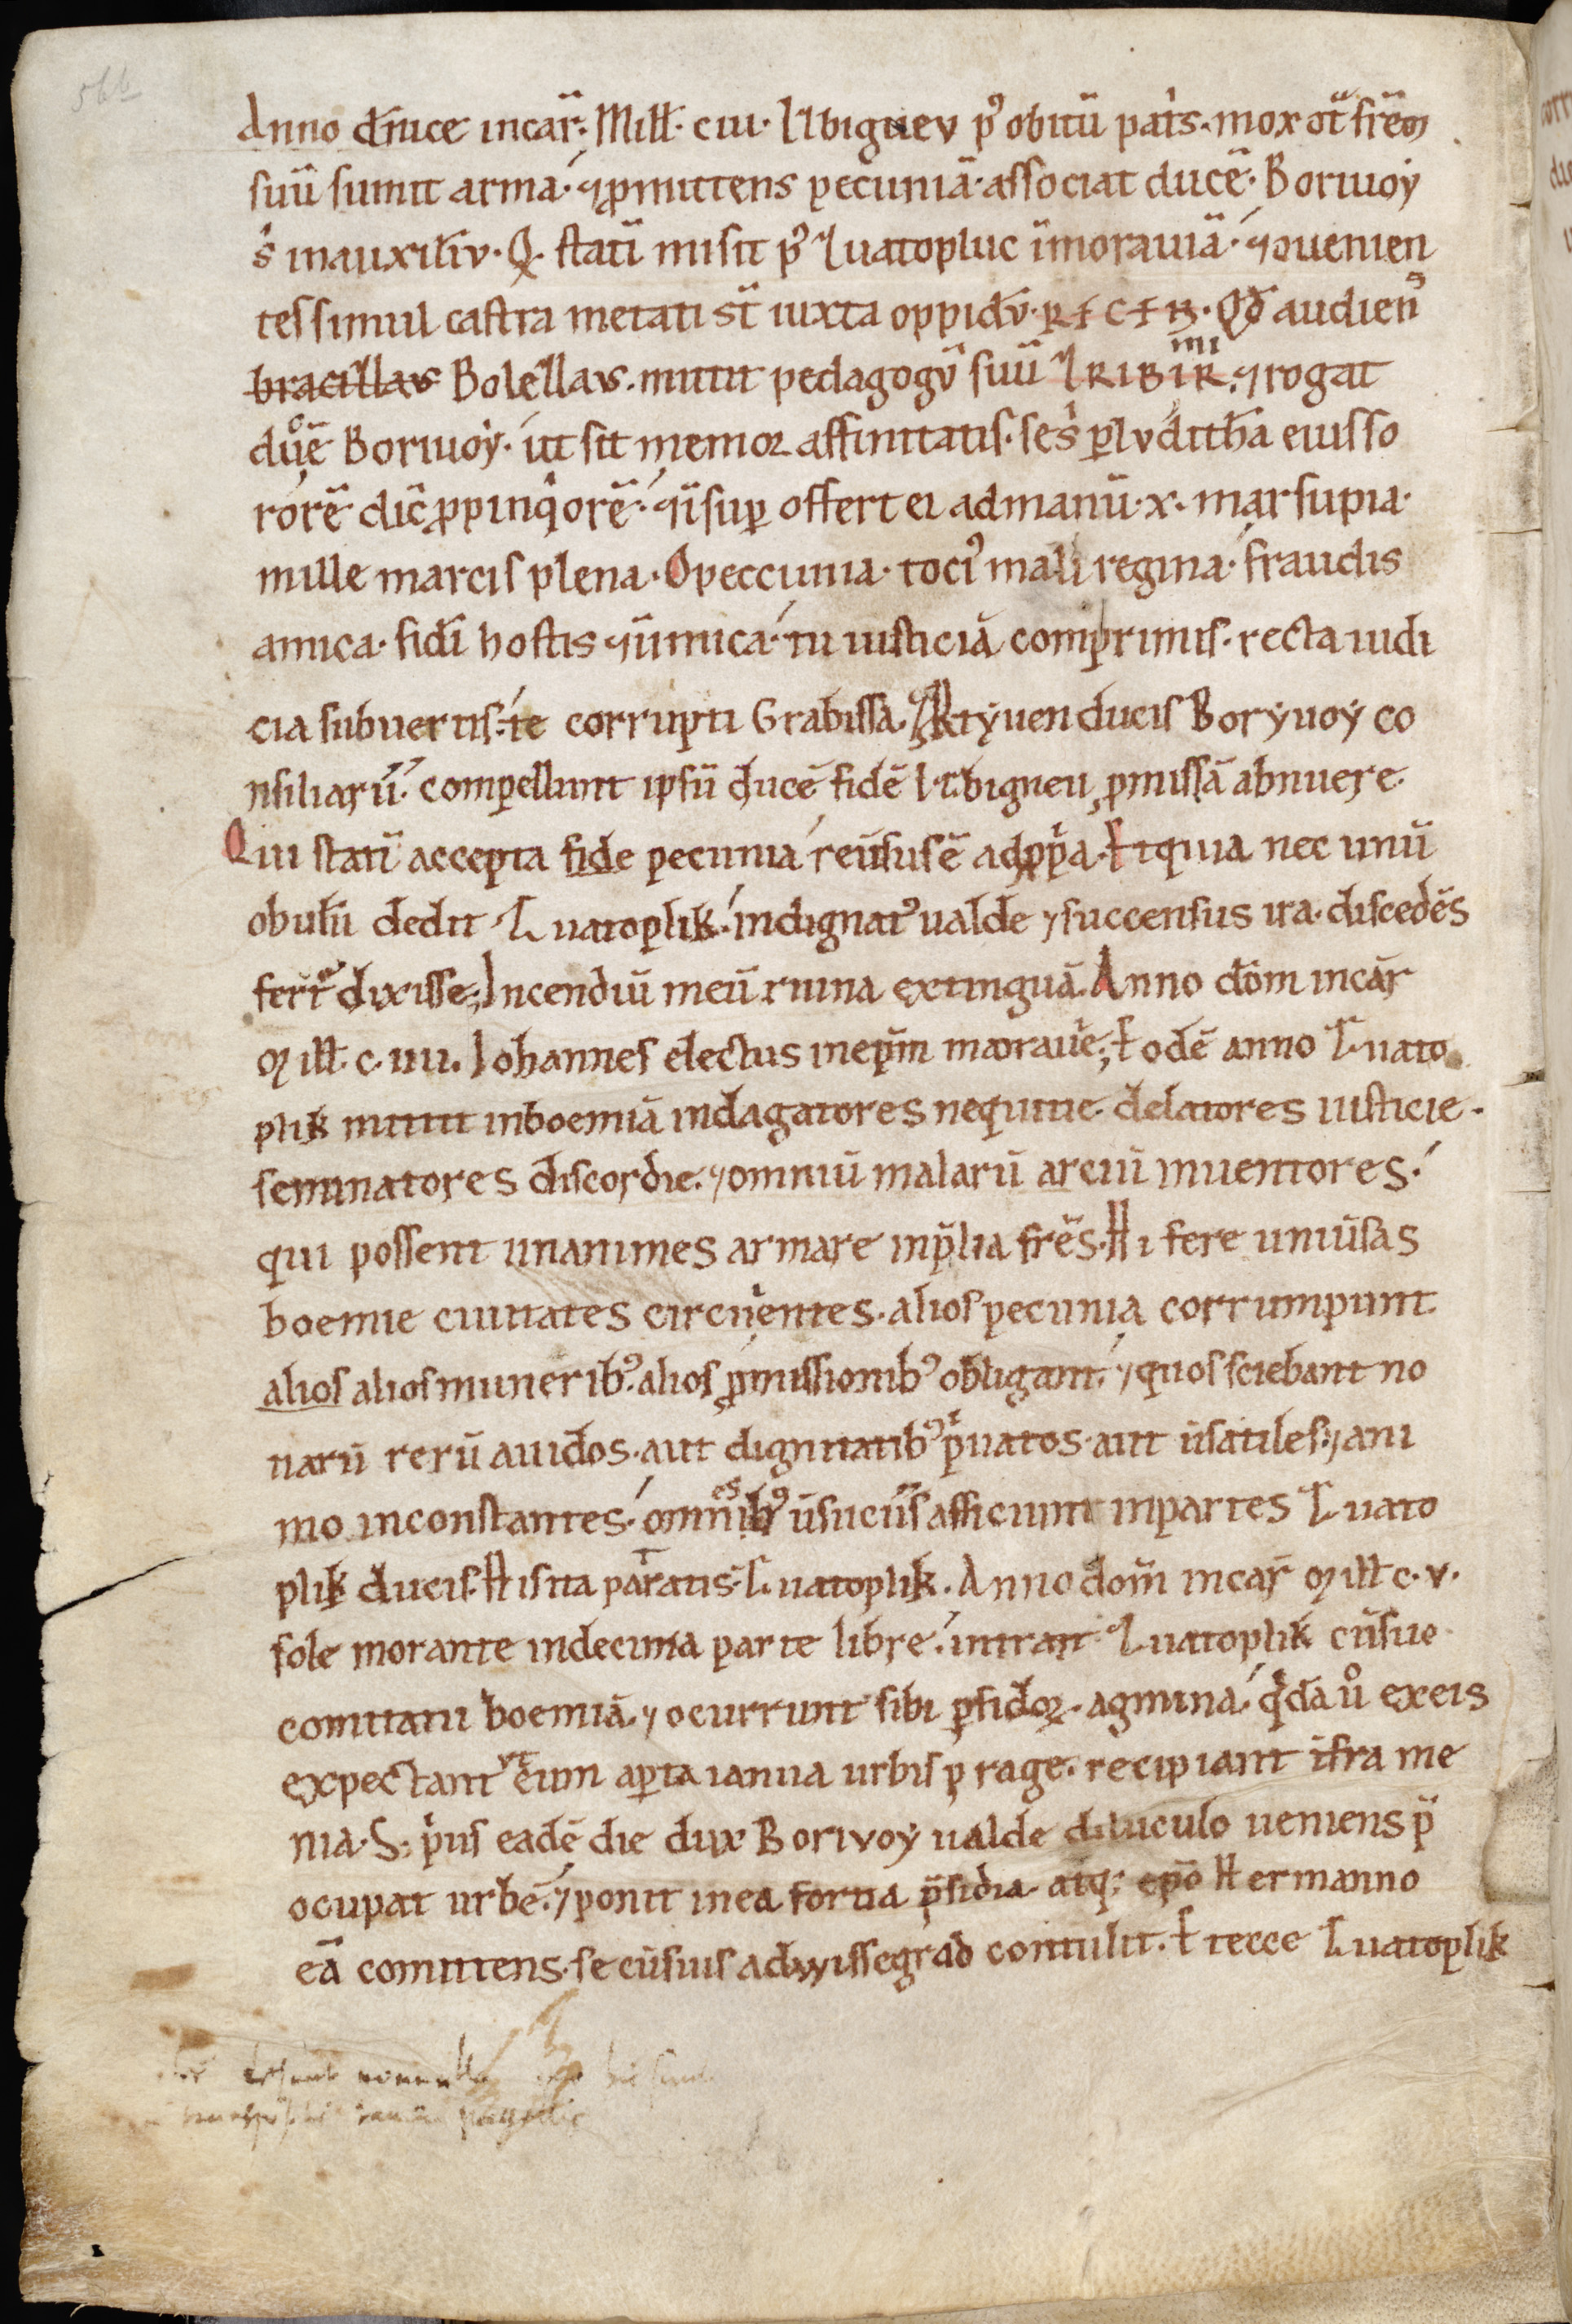 56b
Anno dn̄ice incar̄. Mill̄. ciii. Izbignev pꝰ obitū pat̓s. mox ɔt̄ frēm
suū sumit arma. ⁊ ꝓmittens pecuniā. associat ducē. Boriuoy
s̓ in auxiliv̄. Q. statī misit pꝰ Zuatopluc ī morauiā. ⁊ ɔuenien
tes simul castra metati st̄ iuxta oppidv̄. RECEN. Qđ audienˢ
bracizlaus Bolezlaus. mittit pedagogv̄ suū ZKRIBIMIR. ⁊ rogat
duᵒē Boriuoy. ut sit memor affinitatis. ses̓ ꝑ Ivditham eius so
rorē dic̄ ꝓpinq̓orē. ⁊ īsuꝑ offert ei ad manū. x. marsupia.
mille marcis plena. O peccunia. tociꝰ mali regina. fraudis
amica. fidī hostis ⁊ inimica. tu iusticiā comprimis. recta iudi
cia subuertis. te corrupti Grabissa. ⁊ Ptyuen ducis Boryuoy co
nsiliarii. compellunt ipsū ducē fidē Izbigneu ꝓmissā abnuere.
Qui statī accepta fide pecunia reūsus ē ad ꝓp̓a. Et quia nec unū
obulū dedit Zuatoplik. indignatꝰ ualde ⁊ succensus ira. discedēs
fert̄ᵃ dixisse. Incendiū meū ruina extinguā. Anno dōm incār
Mill̄. c. iiii. Iohannes electus in ep̄m morauiē. Eodē anno Zuato
plik mittit in boemiā indagatores nequitie. delatores iusticie.
seminatores discordie. ⁊ omniū malarū arciū inuentores.
qui possent unanimes armare in p̄lia frēs. Hi fere uniūsas
boemie ciuitates circuentes. alios pecunia corrumpunt.
alios alios munerib.ꝰ alios ꝓmissionibꝰ obligant. ⁊ quos sciebant no
uarū rerū auidos. aut dignitatibꝰ p̓uatos. aut ūsatiles. ⁊ ani
mo inconstantes. omnēsibꝰ ūsuciīs afficiunt in partes Zuato
plik ducis. His ita paratis. Zuatoplik. Anno dom̄ incar̄ Mill̄ c. v.
sole morante in decima parte libre. intrat Zuatoplik cū sue
comitatu boemiā. ⁊ ocurrunt sibi ꝑfidoꝝ. agmina. q̓da uͦ ex eis
expectant ᵘᵗ eum aꝑta ianua urbis prage. recipiant ifra me
nia. S; p̓us eadē die dux Borivoy ualde diluculo ueniens p̄
ocupat urbē. ⁊ ponit in ea fortia p̄sidia. atq; ep̄o Hermanno
eā comittens. se cū suis ad wissegrad contulit. Et ecce Zuatoplik